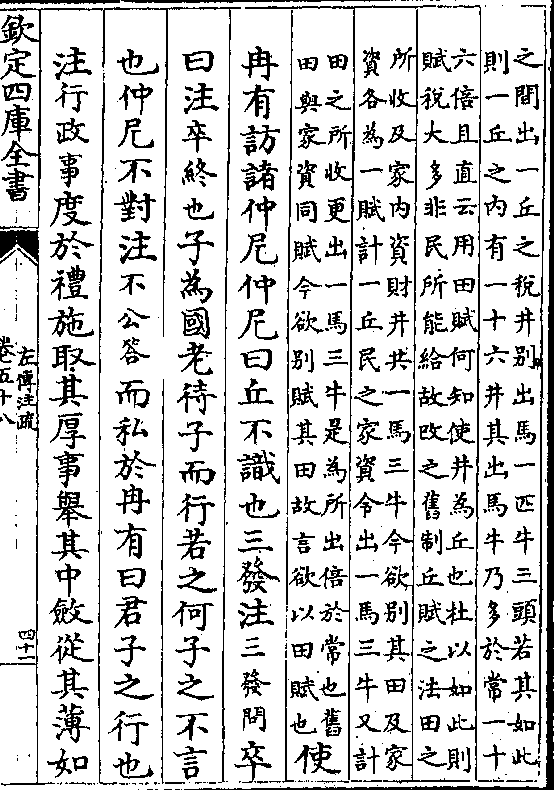 之間出一丘之稅井别出馬一匹牛三頭若其如此
則一丘之內有一十六井其出馬牛乃多於常一十
六倍且直云用田賦何知使井為丘也杜以如此則
賦稅大多非民所能給故改之舊制丘賦之法田之
所收及家內資財井共一馬三牛今欲别其田及家
資各為一賦計一丘民之家資令出一馬三牛又計
田之所收更出一馬三牛是為所出倍於常也舊
田與家資同賦今欲别賦其田故言欲以田賦也使
冉有訪諸仲尼仲尼曰丘不識也三發注三發問卒
曰注卒終也子為國老待子而行若之何子之不言
也仲尼不對注不公答而私於冉有曰君子之行也
注行政事度於禮施取其厚事舉其中斂從其薄如
欽定四庫全書
左傳注疏
卷五十八
四十一